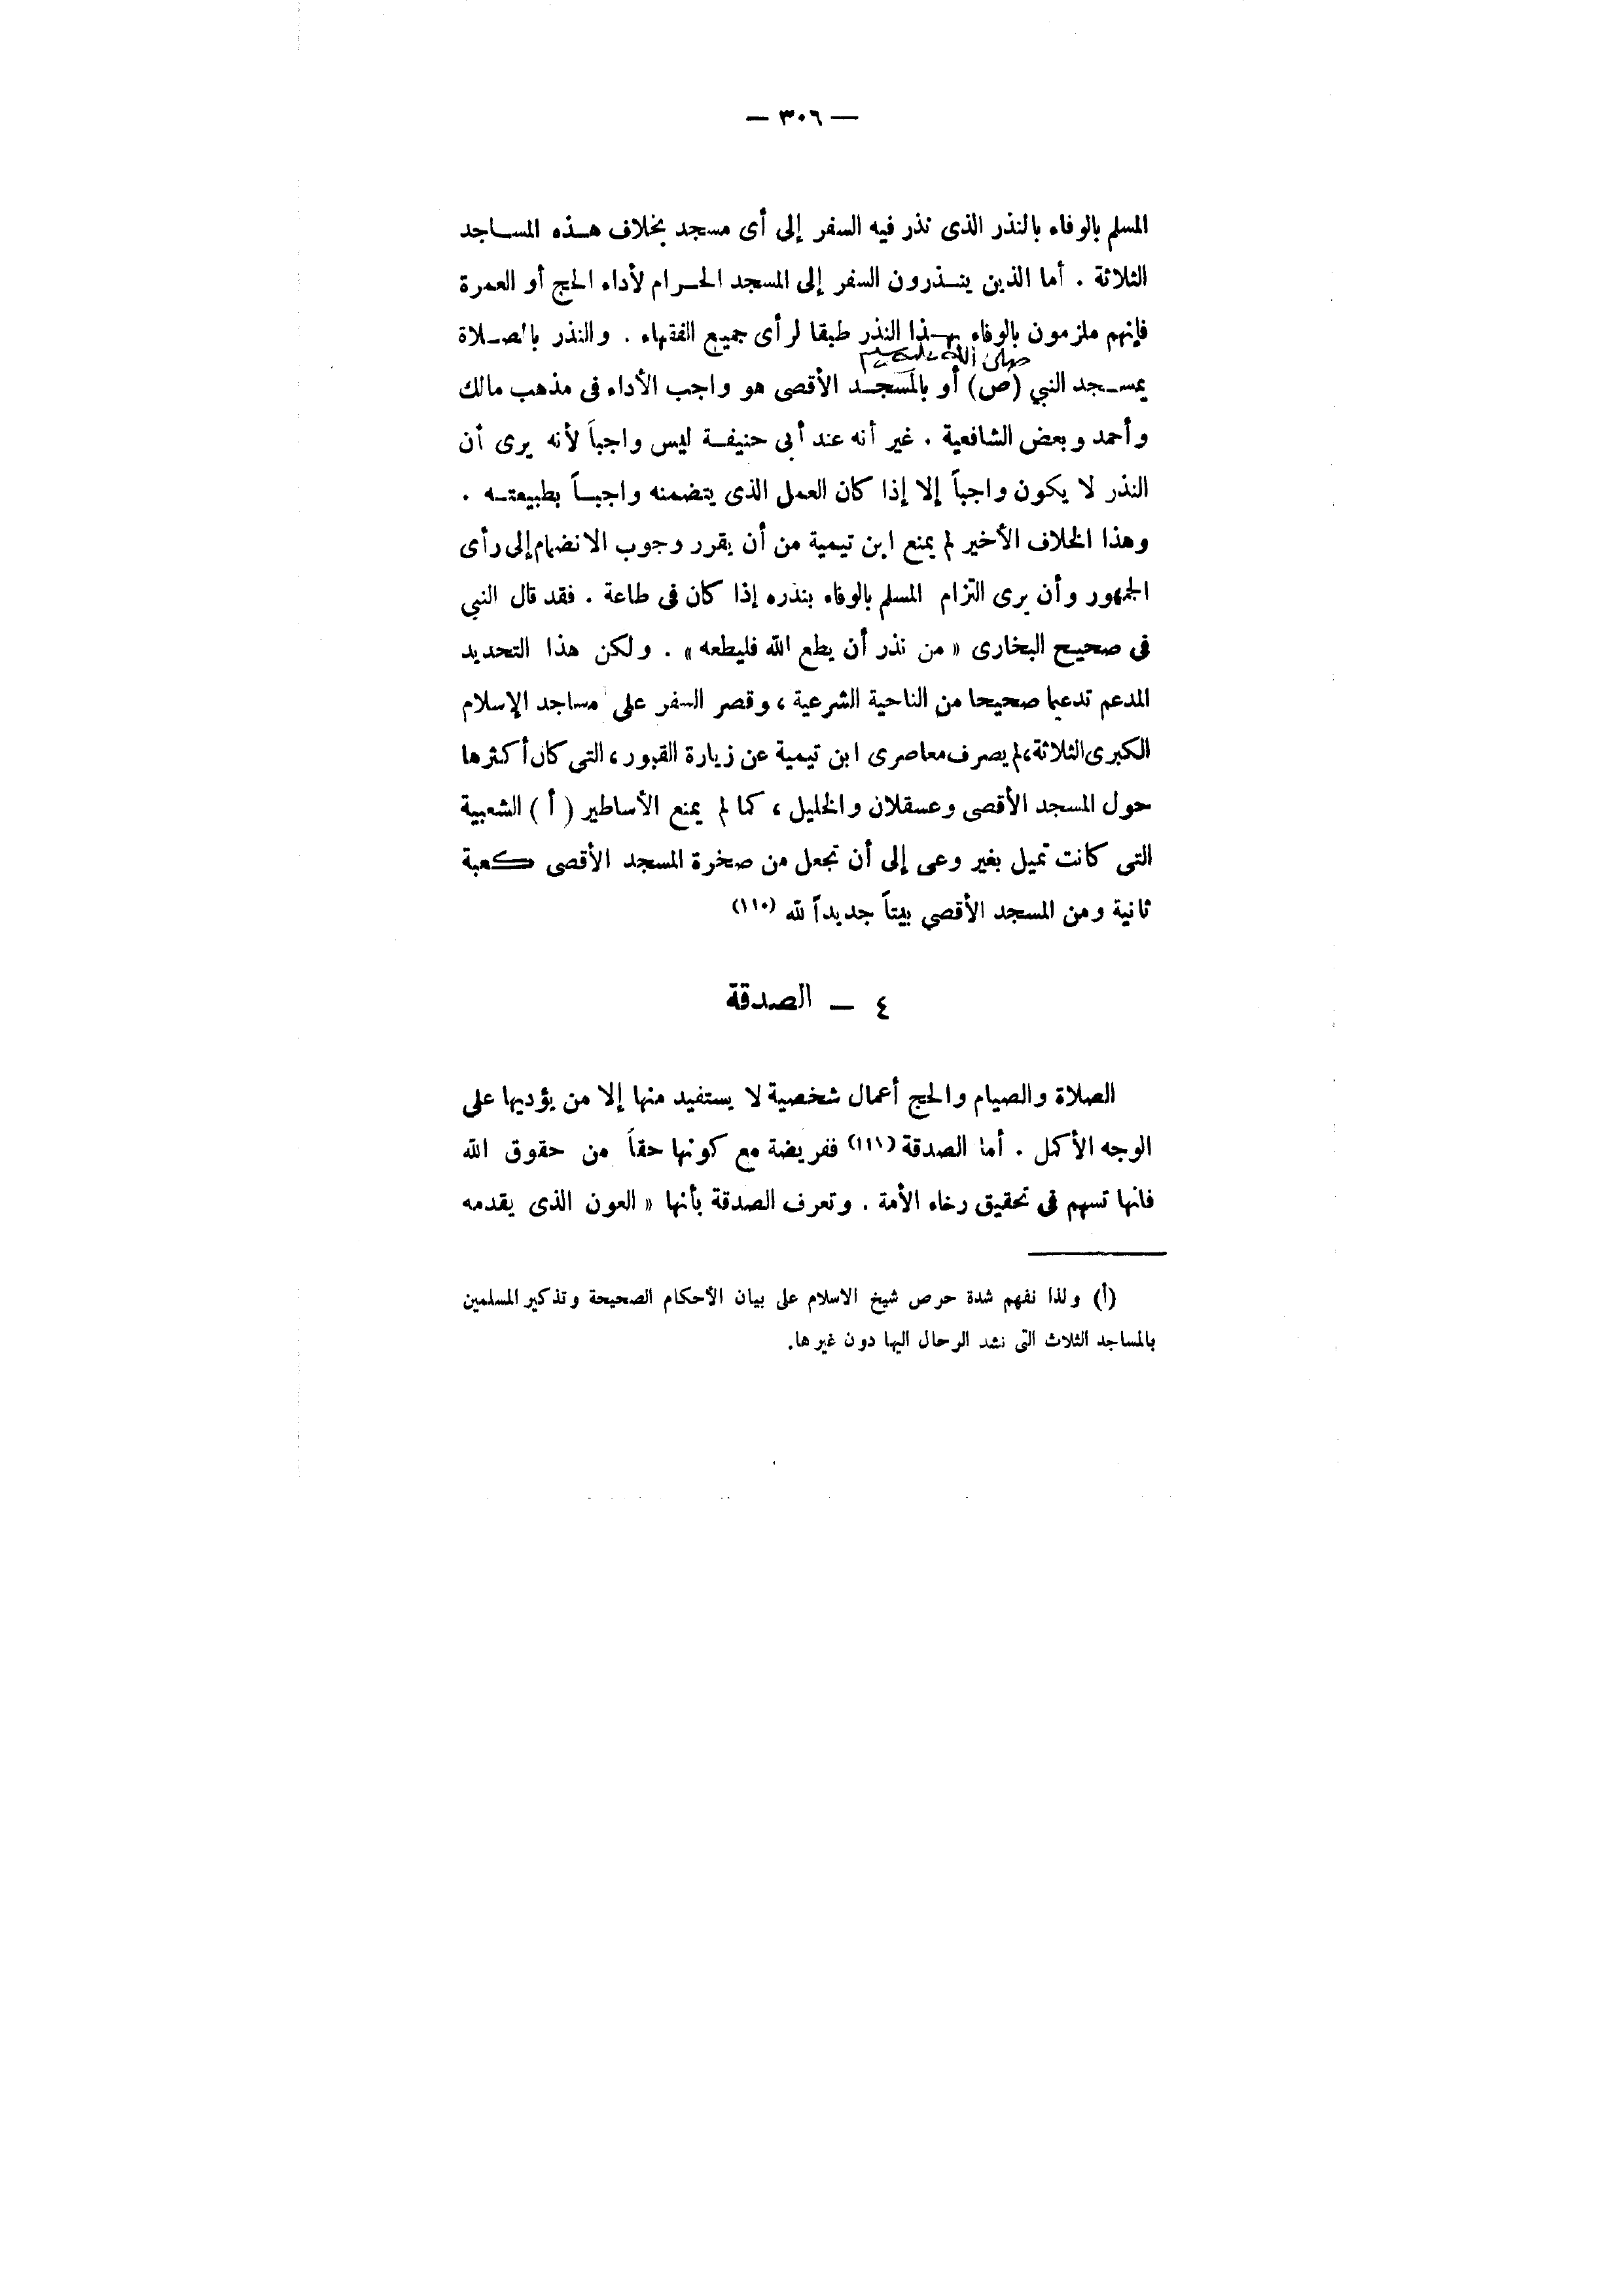 — ٣٠٦ —
المسلم بالوفاء بالنذر الذى نذر فيه السفر إلى أى مسجد بخلاف هذه المساجد
الثلاثة . أما الذين ينذرون السفر إلى المسجد الحرام لأداء الحج أو العمرة
فإنهم ملزمون بالوفاء بهذا النذر طبقا لرأى جميع الفقهاء . والنذر بالصلاة
صلى الله عليه وسلم
بمسجد النبي (ص) أو بالمسجد الأقصى هو واجب الأداء فى مذهب مالك
وأحمد وبعض الشافعية . غير أنه عند أبى حنيفة ليس واجباً لأنه يرى أن
النذر لا يكون واجباً إلا إذا كان العمل الذى يتضمنه واجباً بطبيعته .
وهذا الخلاف الأخير لم يمنع ابن تيمية من أن يقرر وجوب الانضمام إلى رأى
الجمهور وأن يرى التزام المسلم بالوفاء بنذره إذا كان فى طاعة . فقد قال النبي
فى صحيح البخارى « من نذر أن يطع الله فليطعه » . ولكن هذا التحديد
المدعم تدعيما صحيحا من الناحية الشرعية ، وقصر السفر على مساجد الإسلام
الكبرى الثلاثة، لم يصرف معاصرى ابن تيمية عن زيارة القبور ، التى كان أكثرها
حول المسجد الأقصى وعسقلان والخليل ، كما لم يمنع الأساطير ( أ ) الشعبية
التى كانت تميل بغير وعى إلى أن تجعل من صخرة المسجد الأقصى كعبة
ثانية ومن المسجد الأقصى بيتاً جديداً لله (١١٠)
٤ — الصدقة
الصلاة والصيام والحج أعمال شخصية لا يستفيد منها إلا من يؤديها على
الوجه الأكمل . أما الصدقة (١١١) ففريضة مع كونها حقاً من حقوق الله
فانها تسهم فى تحقيق رخاء الأمة . وتعرف الصدقة بأنها « العون الذى يقدمه
(أ) ولذا نفهم شدة حرص شيخ الاسلام على بيان الأحكام الصحيحة وتذكير المسلمين
بالمساجد الثلاث التى نشد الرحال اليها دون غيرها.